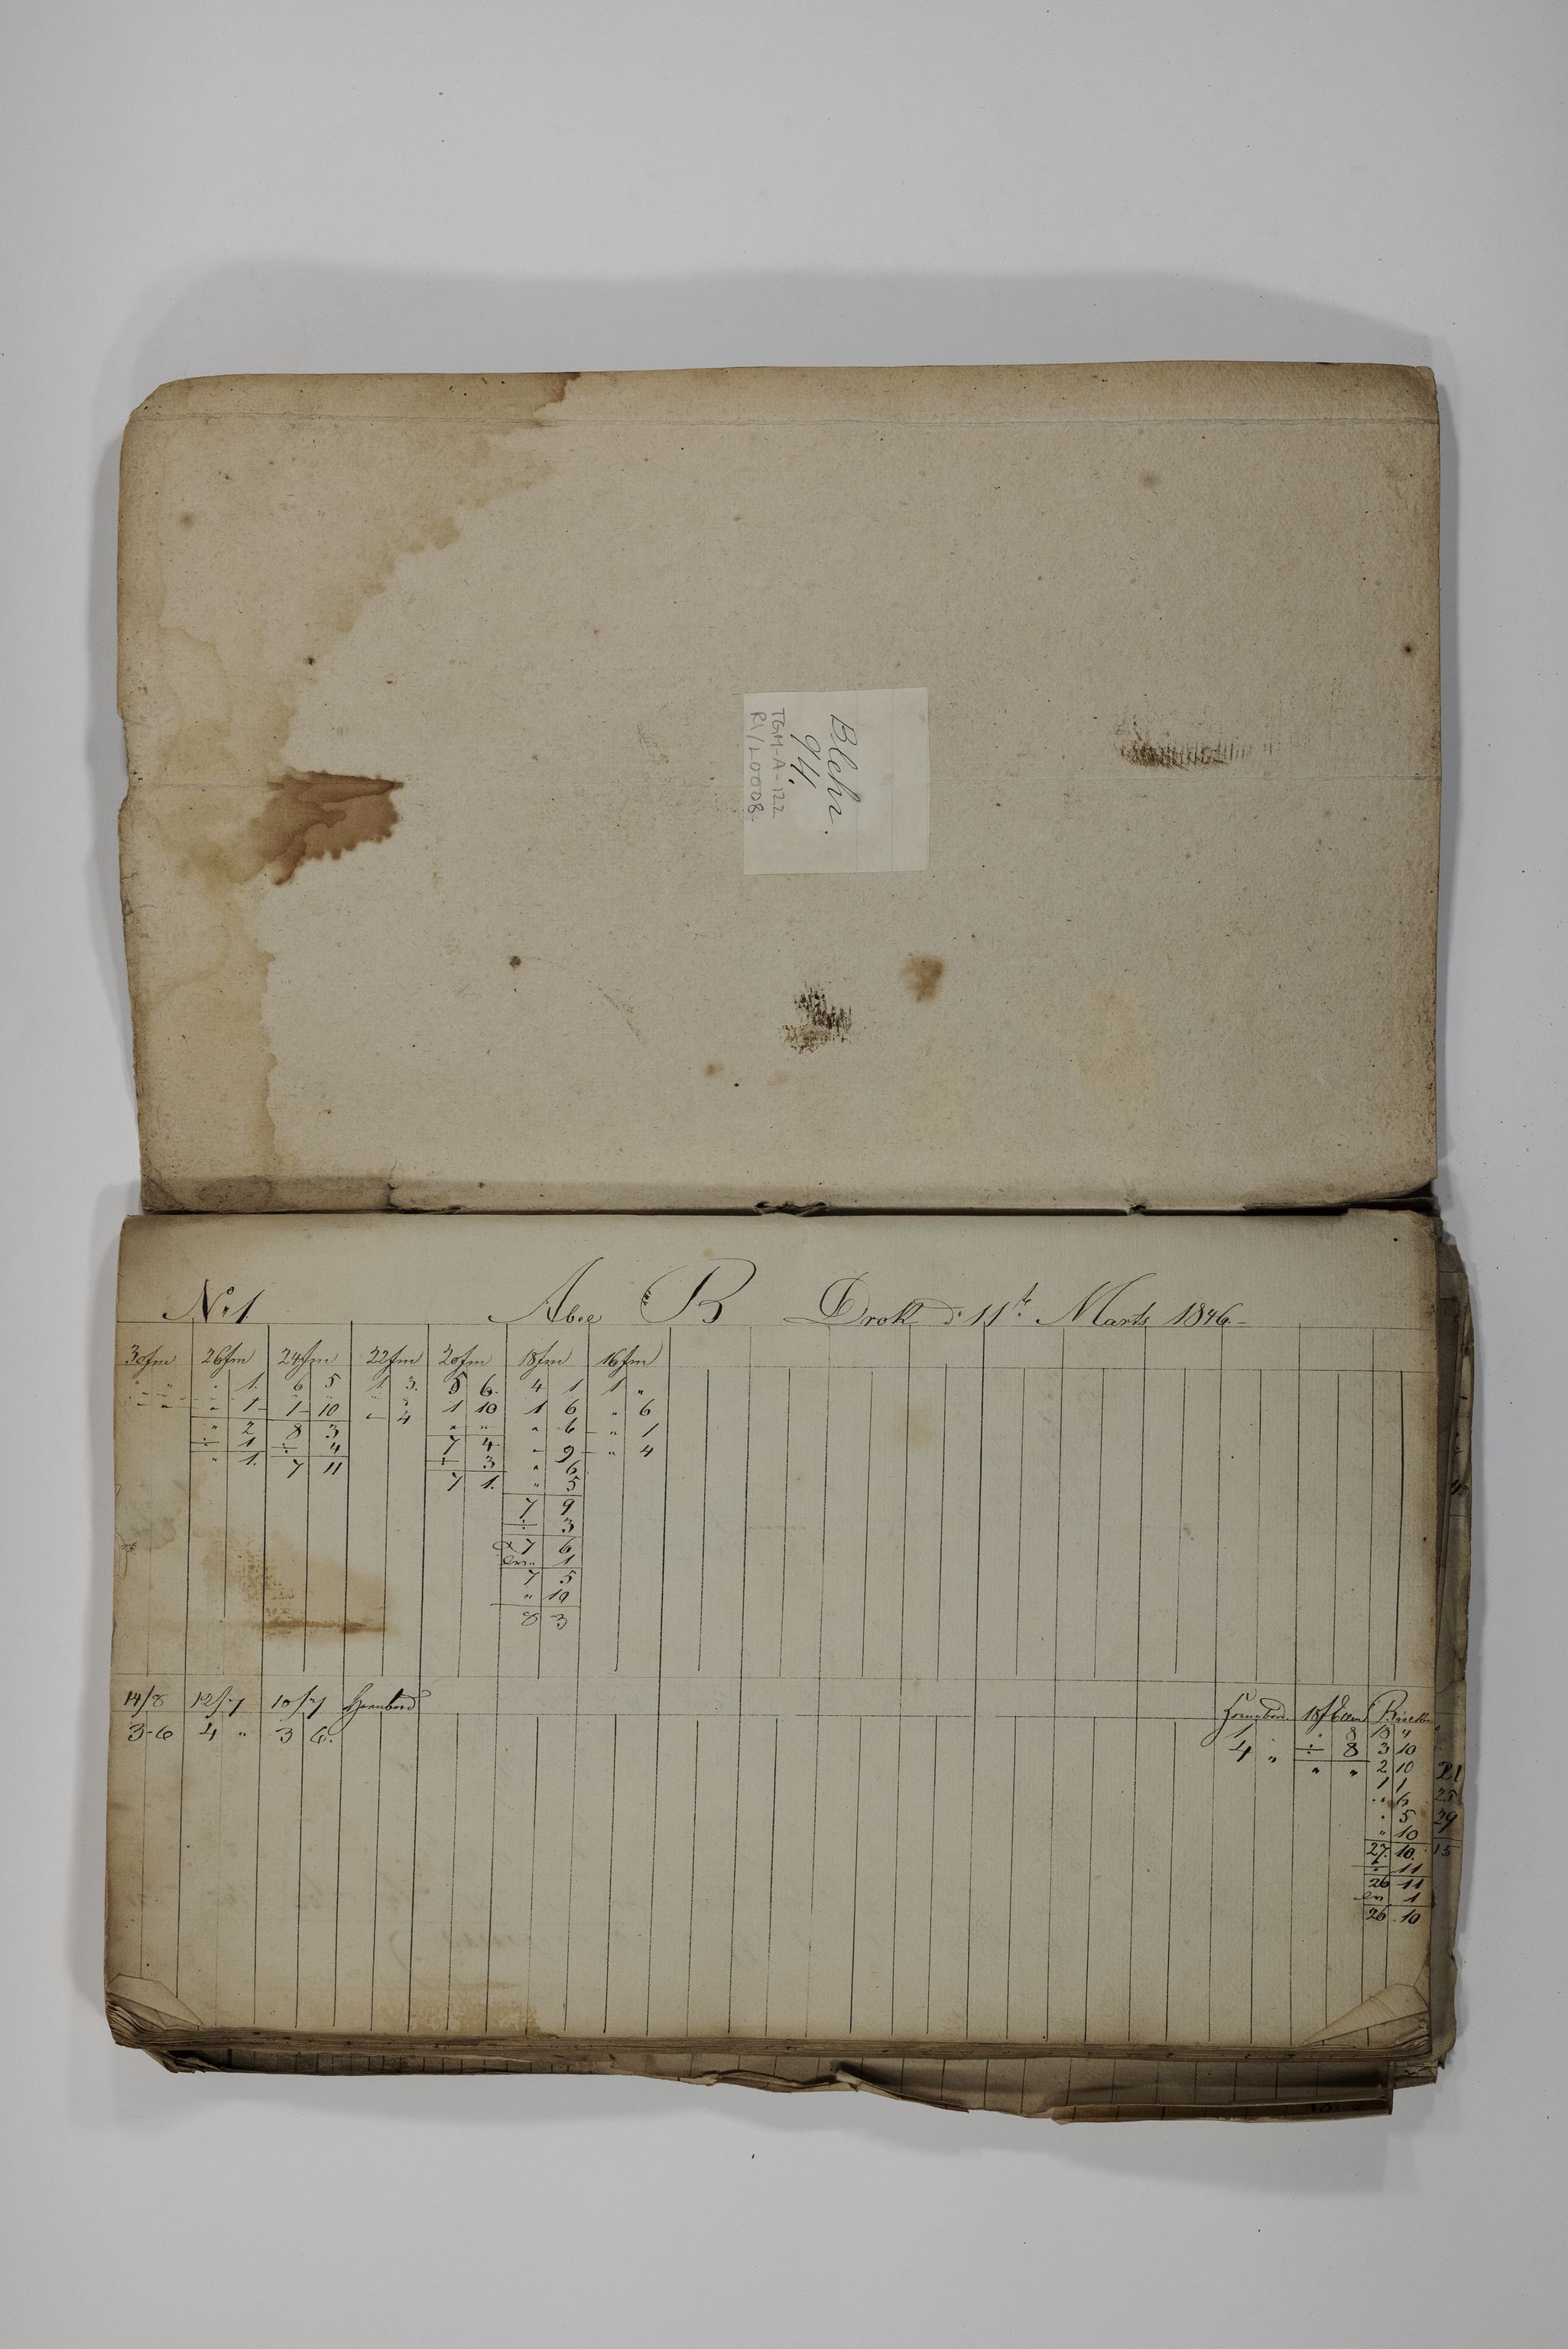 Blehr.
94.
TGM-A-122
R1/L0008-
No 1. B Drokt d: 11te Marts 1846.-
30fm 26fm 24fm 22fm 20fm 18fm 16fm
" " " 1. 6 5 1 3. 5 6. 4 1 1 "
" " " 1 1 10 " 4 1 10 1 6 " 6
" 2 8 3 " " " 6 " 1
÷ 1 ÷ 4 7 4 " 9 " 4
" 1. 7 11 ÷ 3 " 6
7 1. " 5
7 9
÷ 3
7 6
1
7 5
" 10
8 3
14/8 12/7 10/7
3-6 4 " 3 6.
1 " " 8 18 "
4 " ÷ 8 3 10
" " 2 10 21
1 1
" 6 25
" 5 29
" 10
27. 10. 15
÷ 11
26 11
1
26 10